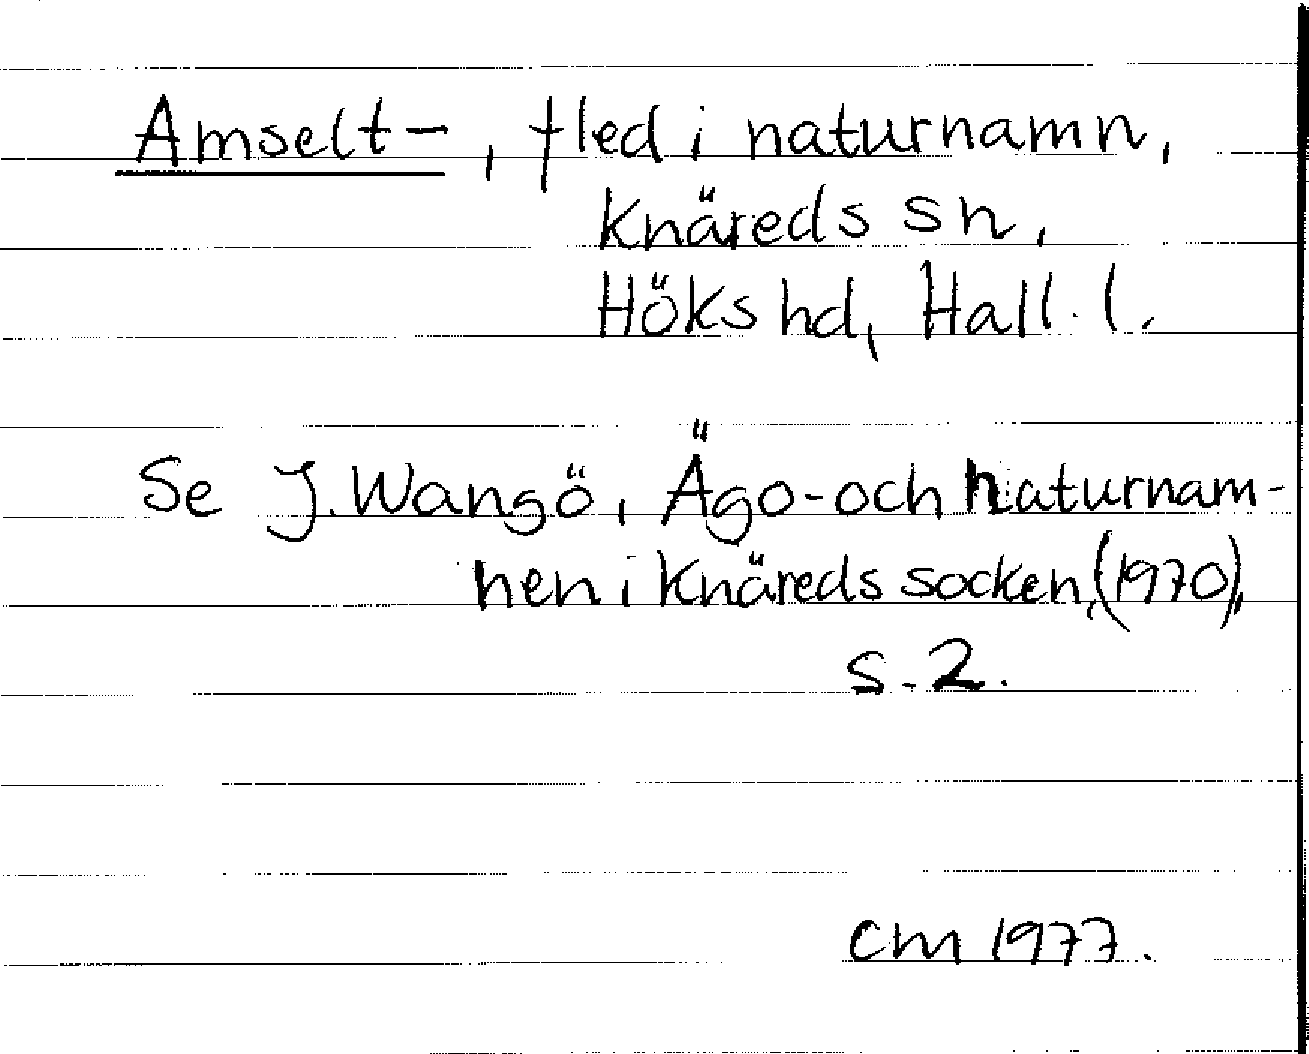 Amselt-, fled i naturnamn,
Knäreds sn,
Höks hd, Hall. l.
Se J. Wangö, Ägo- och naturnam-
nen i Knäreds socken, (1970),
s. 2.
CM 1977.